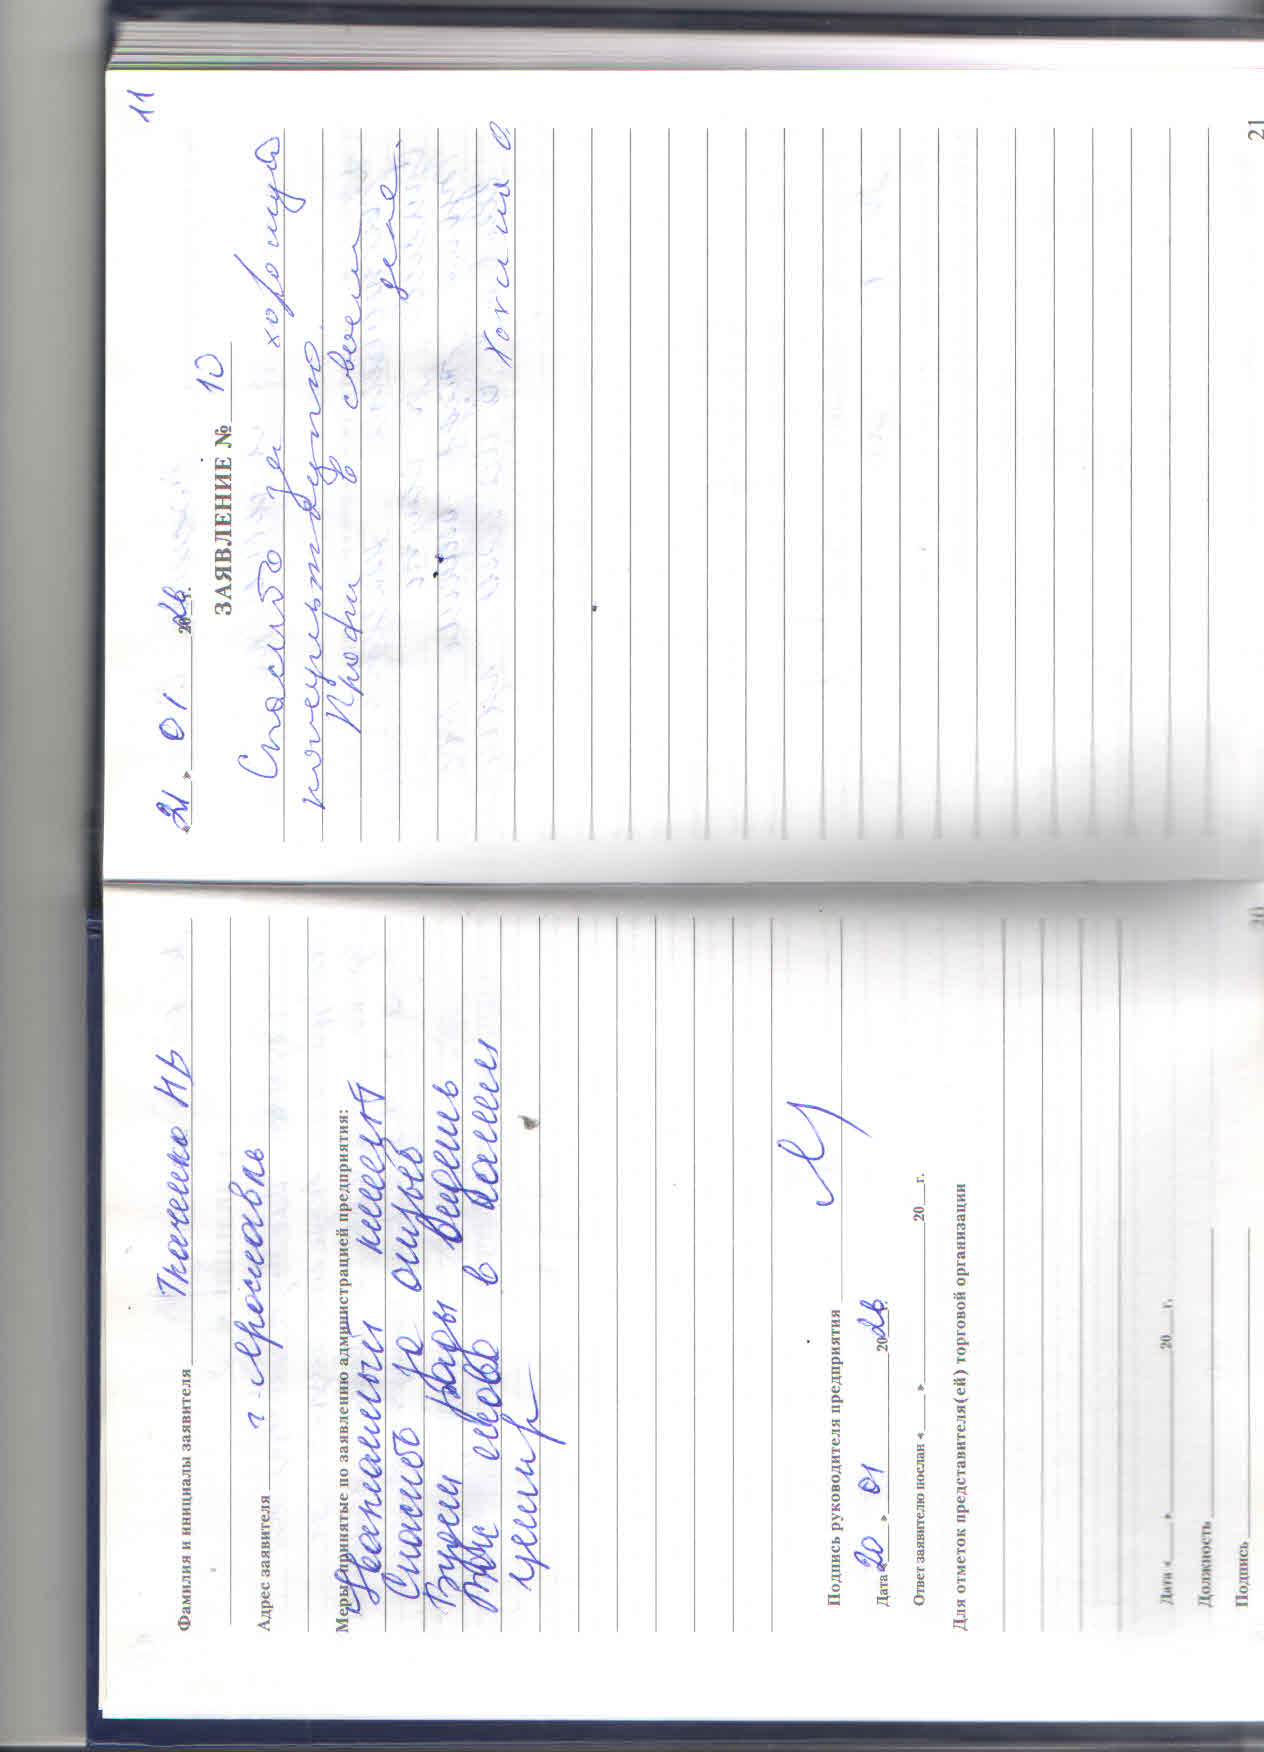 Фамилия и инициалы заявителя Ткаченко НВ
Адрес заявителя г. Ярославль
Меры, принятые по заявлению администрацией предприятия:
Спасибо за отзыв
Будем рады видеть
Вас снова в нашем
центр
Подпись руководителя предприятия
Дата «20» 01 2026г.
Ответ заявителю послан «____»____________20__г.
Для отметок представителя(ей) торговой организации
Дата «____»____________20__г.
Должность
Подпись
20
11
«21» 01 2026г.
ЗАЯВЛЕНИЕ № 10
Спасибо за хорошую
консультацию.
Профи в своем
деле.
21